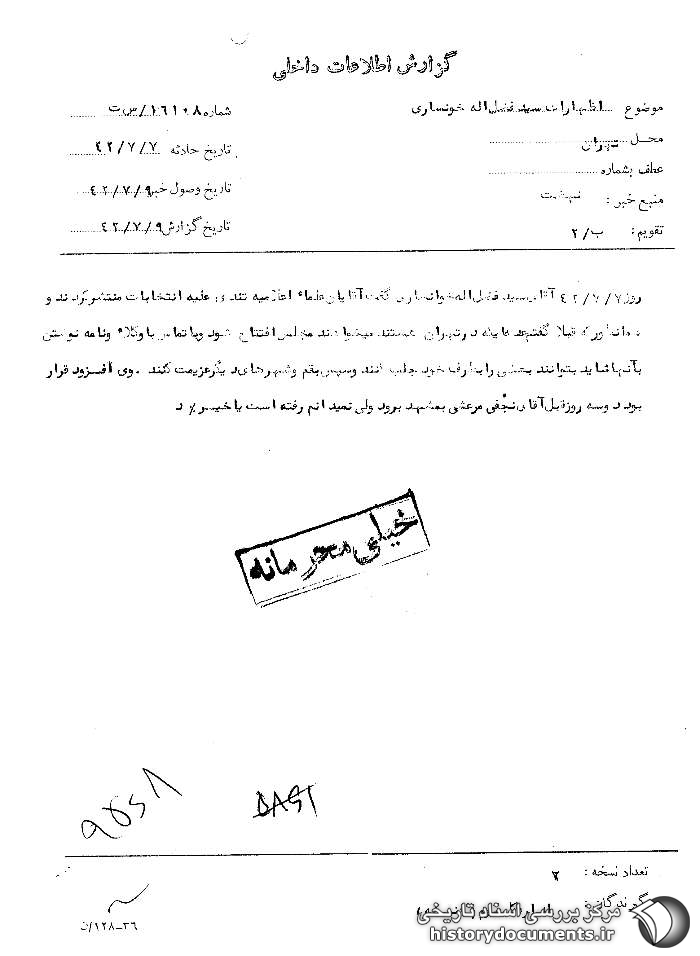 گزارش اطلاعات داخلی
موضوع اظهارات سید فضل اله خونساری
شماره ۱۶۱۰۸/س ت
محل تهران
تاریخ حادثه ۴۲/۷/۷
عطف بشماره
تاریخ وصول خبر ۴۲/۷/۹
منبع خبر: نسبت
تاریخ گزارش ۴۲/۷/۹
تقویم: ب/۲
روز ۴۲/۷/۷ آقای سید فضل اله خوانساری گفت آقایان علماء اعلامیه تندی علیه انتخابات منتشر کردند و
همانطور که قبلا گفتم در تهران هستند میخواهند مجلس افتتاح شود و با تماس با وکلاء و نامه نوشتن
بآنها شاید بتوانند بعضی را بطرف خود جلب کنند و سپس بقم و شهرهای دیگر عزیمت کنند. وی افزود قرار
بود دو سه روز قبل آقای نجفی مرعشی بمشهد برود ولی نمیدانم رفته است یا خیر
خیلی محرمانه
تعداد نسخه: ۲
۳۶-۱۲۸/ن
مرکز بررسی اسناد تاریخی
historydocuments.ir